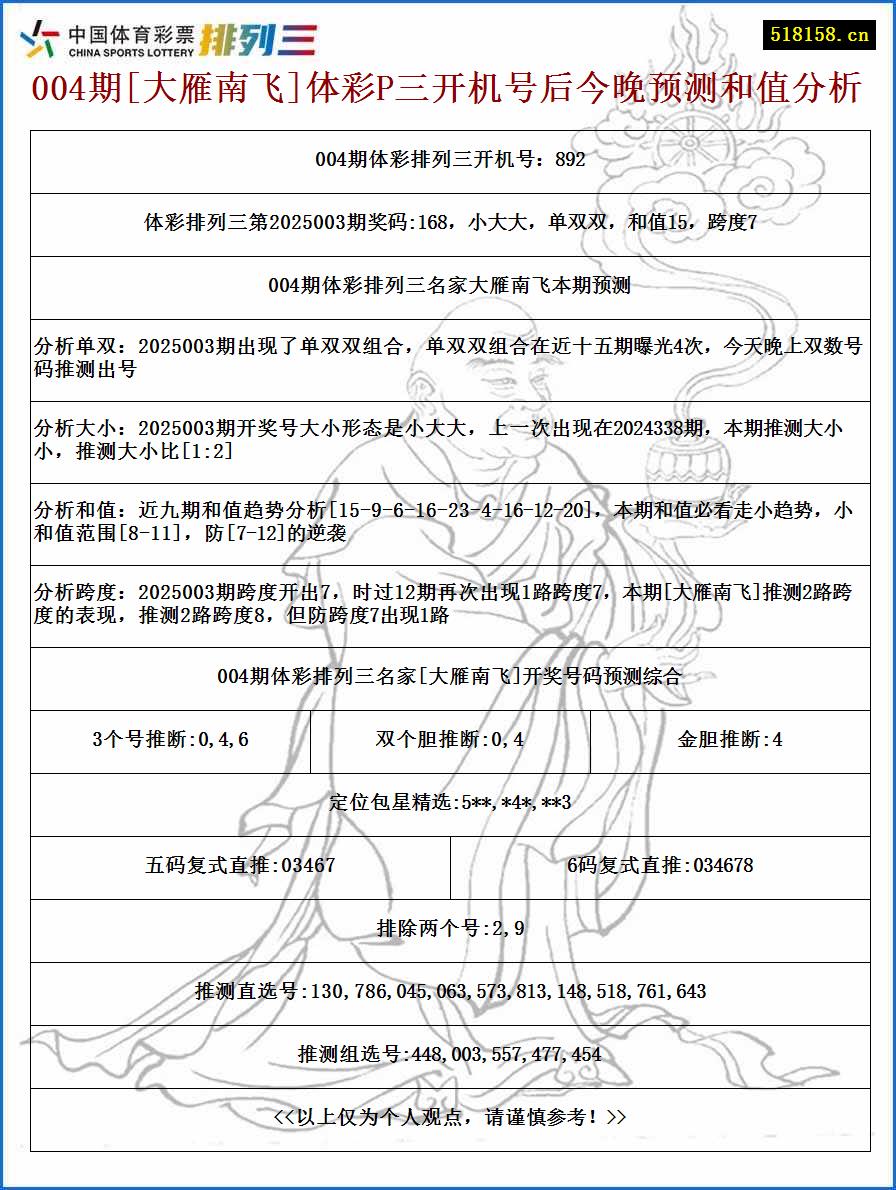 中国体育彩票
CHINA SPORTS LOTTERY
排列三
518158.cn
004期[大雁南飞]体彩P三开机号后今晚预测和值分析
004期体彩排列三开机号：892
体彩排列三第2025003期奖码:168，小大大，单双双，和值15，跨度7
004期体彩排列三名家大雁南飞本期预测
分析单双：2025003期出现了单双双组合，单双双组合在近十五期曝光4次，今天晚上双数号
码推测出号
分析大小：2025003期开奖号大小形态是小大大，上一次出现在2024338期，本期推测大小
小，推测大小比[1:2]
分析和值：近九期和值趋势分析[15-9-6-16-23-4-16-12-20]，本期和值必看走小趋势，小
和值范围[8-11]，防[7-12]的逆袭
分析跨度：2025003期跨度开出7，时过12期再次出现1路跨度7，本期[大雁南飞]推测2路跨
度的表现，推测2路跨度8，但防跨度7出现1路
004期体彩排列三名家[大雁南飞]开奖号码预测综合
3个号推断:0,4,6
双个胆推断:0,4
金胆推断:4
定位包星精选:5**,*4*,**3
五码复式直推:03467
6码复式直推:034678
排除两个号:2,9
推测直选号:130,786,045,063,573,813,148,518,761,643
推测组选号:448,003,557,477,454
<<以上仅为个人观点，请谨慎参考！>>